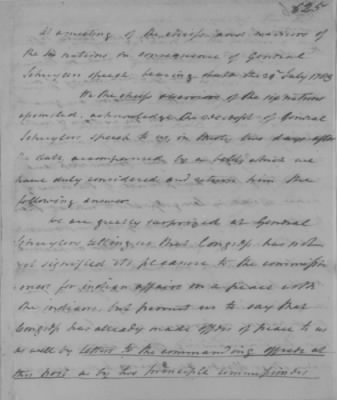 525
At a meeting of the chiefs and warriors of
the six nations in consequence of General
Schuylers speech bearing date the 29 July 1783
We the chiefs & warriors of the six nations
assembled, acknowledge the receipt of General
Schuylers speech to us, in days after
its date, accompanied by a belt, which we
have duly considered and return him the
following answer
We are greatly surprized at General
Schuylers telling us that Congress has not
yet signified its pleasure to the commission
-ers for indian affairs on a peace with
the indians, but permit us to say that
Congress has already made offers of peace to us
as well by letters to the commanding officer at
this post as by two principle commissioners